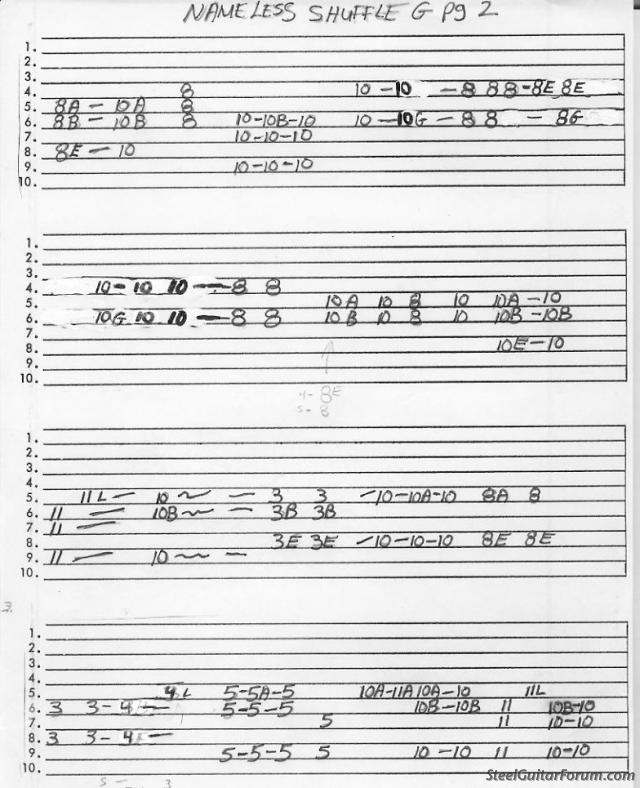 NAMELESS SHUFFLE G Pg 2
1.
2.
3.
4. 8 10 - 10 - 8 8 8 - 8E 8E
5. 8A - 10A 8
6. 8B - 10B 8 10-10B-10 10 - 10G - 8 8 - 8G
7. 10-10-10
8. 8E - 10
9. 10-10-10
10.
1.
2.
3.
4. 10 - 10 10 - 8 8
5. 10A 10 8 10 10A - 10
6. 10G 10 10 - 8 8 10B 10 8 10 10B - 10B
7.
8. 10E - 10
9.
10.
4- 8E
5- 8
1.
2.
3.
4.
5. 11L - 10 ~ - 3 3 - 10 - 10A - 10 8A 8
6. 11 - 10B ~ - 3B 3B
7. 11 -
8. 3E 3E - 10 - 10 - 10 8E 8E
9. 11 - 10 ~ -
10.
3
1.
2.
3.
4.
5. 4L 5-5A-5 10A-11A 10A-10 11L
6. 3 3-4 - 5-5-5 10B-10B 11 10B-10
7. 5 11 10-10
8. 3 3-4E -
9. 5-5-5 5 10-10 11 10-10
10.
5 - 3
SteelGuitarForum.com